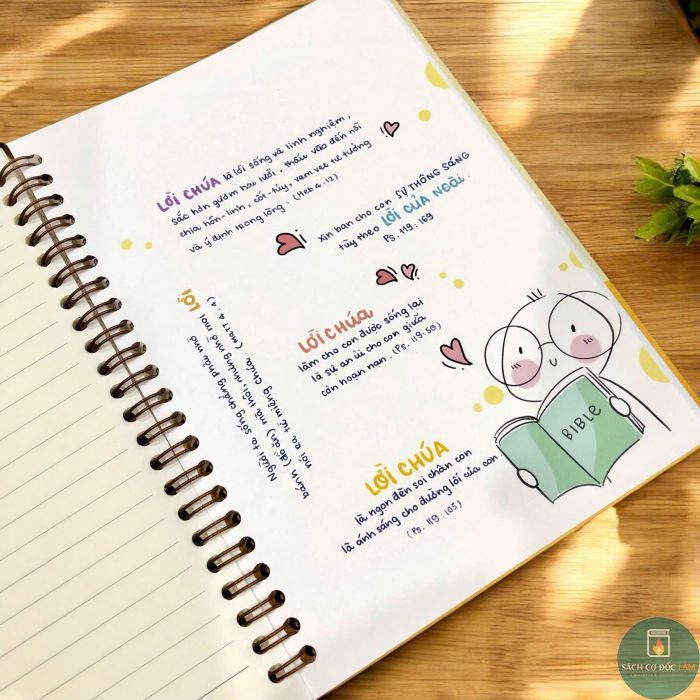 LỜI CHÚA là lời sống và linh nghiệm,
sắc hơn gươm hai lưỡi, thấu vào đến nỗi
chia hồn-linh, cốt-tủy, xem xét tư tưởng
và ý định trong lòng. (Heb 4:12)
Xin ban cho con SỰ THÔNG SÁNG
tùy theo LỜI CỦA NGÀI.
Ps. 119:169
Người ta sống chẳng phải chỉ nhờ
bánh (đồ ăn) mà thôi, nhưng nhờ mọi LỜI
nói ra từ miệng Chúa. (Matt 4:4)
LỜI CHÚA
làm cho con được sống lại
là sự an ủi cho con giữa
cơn hoạn nạn. (Ps. 119:50)
LỜI CHÚA
là ngọn đèn soi chân con
là ánh sáng cho đường lối của con
(Ps. 119:105)
BIBLE
SÁCH CƠ ĐỐC LAM